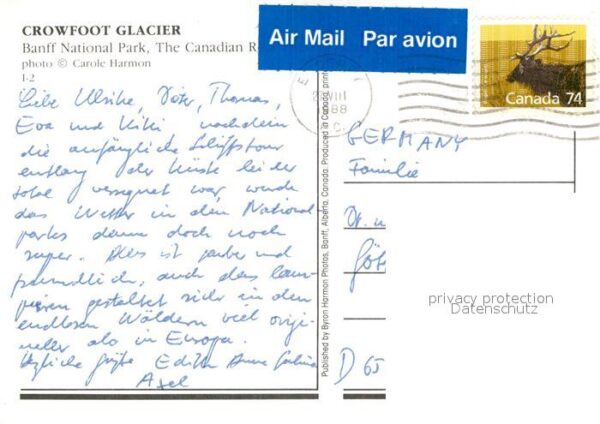 CROWFOOT GLACIER
Banff National Park, The Canadian R
photo © Carole Harmon
I-2
Air Mail Par avion
Canada 74
VIII
1988
Liebe Ulrike, Thomas,
Eva und Kiki nachdem
die anfängliche Schiffstour
entlang der Küste leider
total verregnet war, wurde
das Wetter in den National
parks dann doch noch
super. Alles ist sauber und
freundlich, auch das Cam-
pieren gestaltet sich in den
endlosen Wäldern viel origi-
neller als in Europa.
Herzliche Grüße Edith Anne
Axel
Published by Byron Harmon Photos, Banff, Alberta, Canada. Produced in Canada, printed
GERMANY
Familie
Dr. u
Göt
D 65
privacy protection
Datenschutz